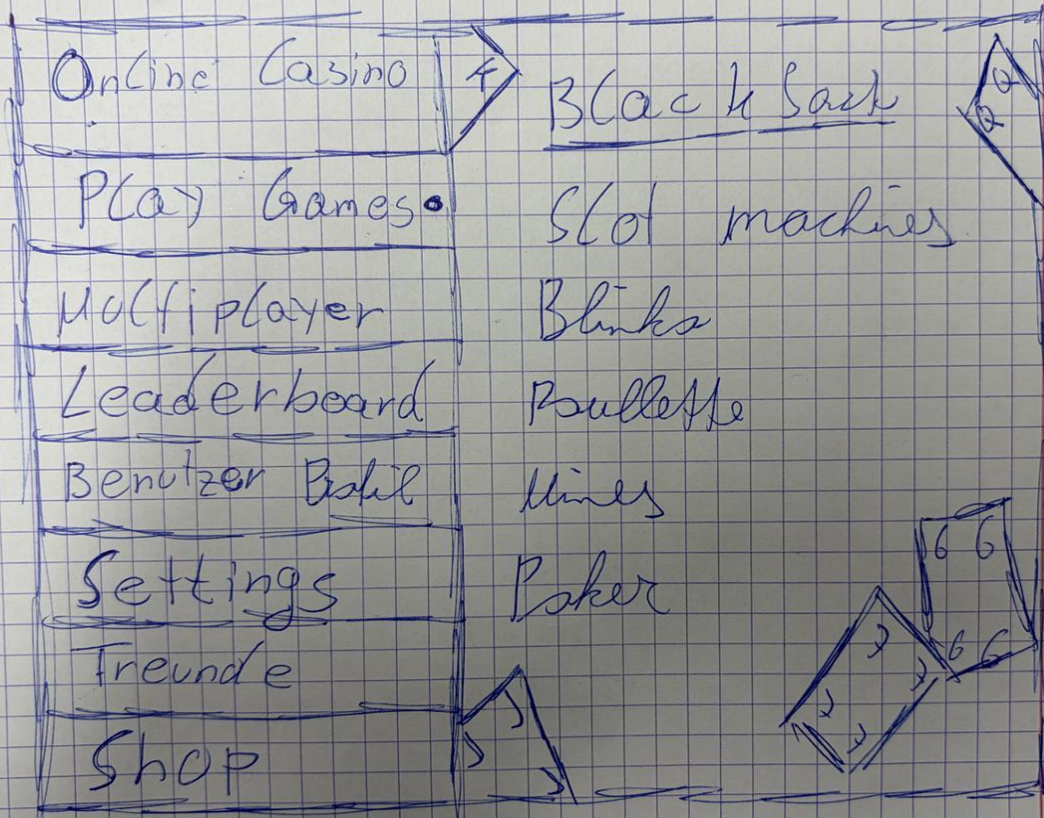 Online Casino
Play Games
Multiplayer
Leaderboard
Benutzer Profil
Settings
Freunde
Shop
4
Black Jack
Slot machines
Blinks
Roullette
Mines
Poker
Q Q
6 6
6 6
J
J
J